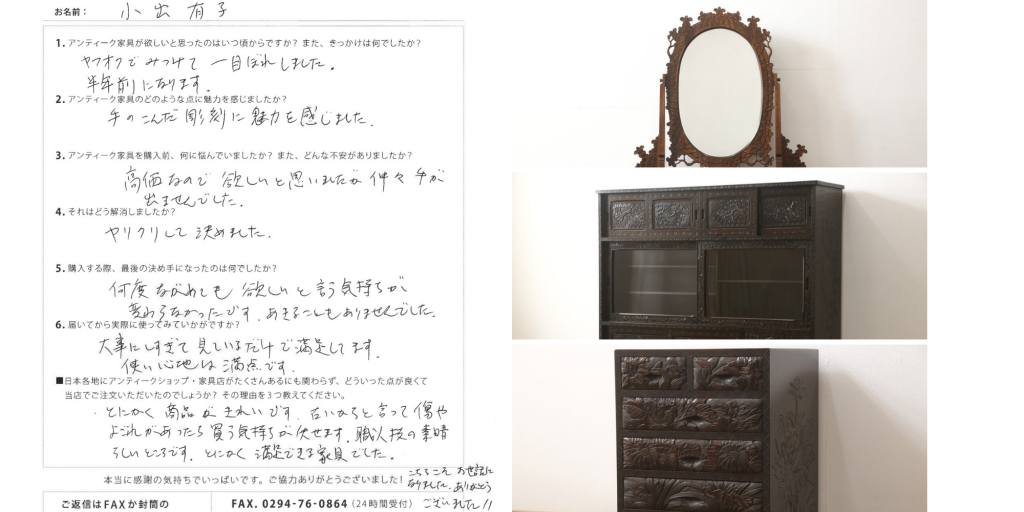 お名前： 小出 有子
1. アンティーク家具が欲しいと思ったのはいつ頃からですか？ また、きっかけは何でしたか？
ヤフオクでみつけて 一目ぼれしました。
半年前になります。
2. アンティーク家具のどのような点に魅力を感じましたか？
手のこんだ彫刻に魅力を感じました。
3. アンティーク家具を購入前、何に悩んでいましたか？ また、どんな不安がありましたか？
高価なので 欲しいと思いましたが 仲々手が
出ませんでした。
4. それはどう解消しましたか？
ヤリクリして 決めました。
5. 購入する際、最後の決め手になったのは何でしたか？
何度ながめても 欲しいと言う気持ちが
変わらなかったです。あきることもありませんでした。
6. 届いてから実際に使ってみていかがですか？
大事にしすぎて見ているだけで満足してます。
使い心地は 満点です。
■日本各地にアンティークショップ・家具店がたくさんあるにも関わらず、どういった点が良くて
当店でご注文いただいたのでしょうか？ その理由を３つ教えてください。
・とにかく 商品が きれいです。古いからと言って 傷や
よごれがあったら買う気持ちが伏せます。職人技の素晴
らしいところです。とにかく 満足できる家具でした。
本当に感謝の気持ちでいっぱいです。ご協力ありがとうございました！
こちらこそ お世話に
なりました。ありがとう
ございました!!
ご返信はFAXか封筒の
FAX. 0294-76-0864（24時間受付）